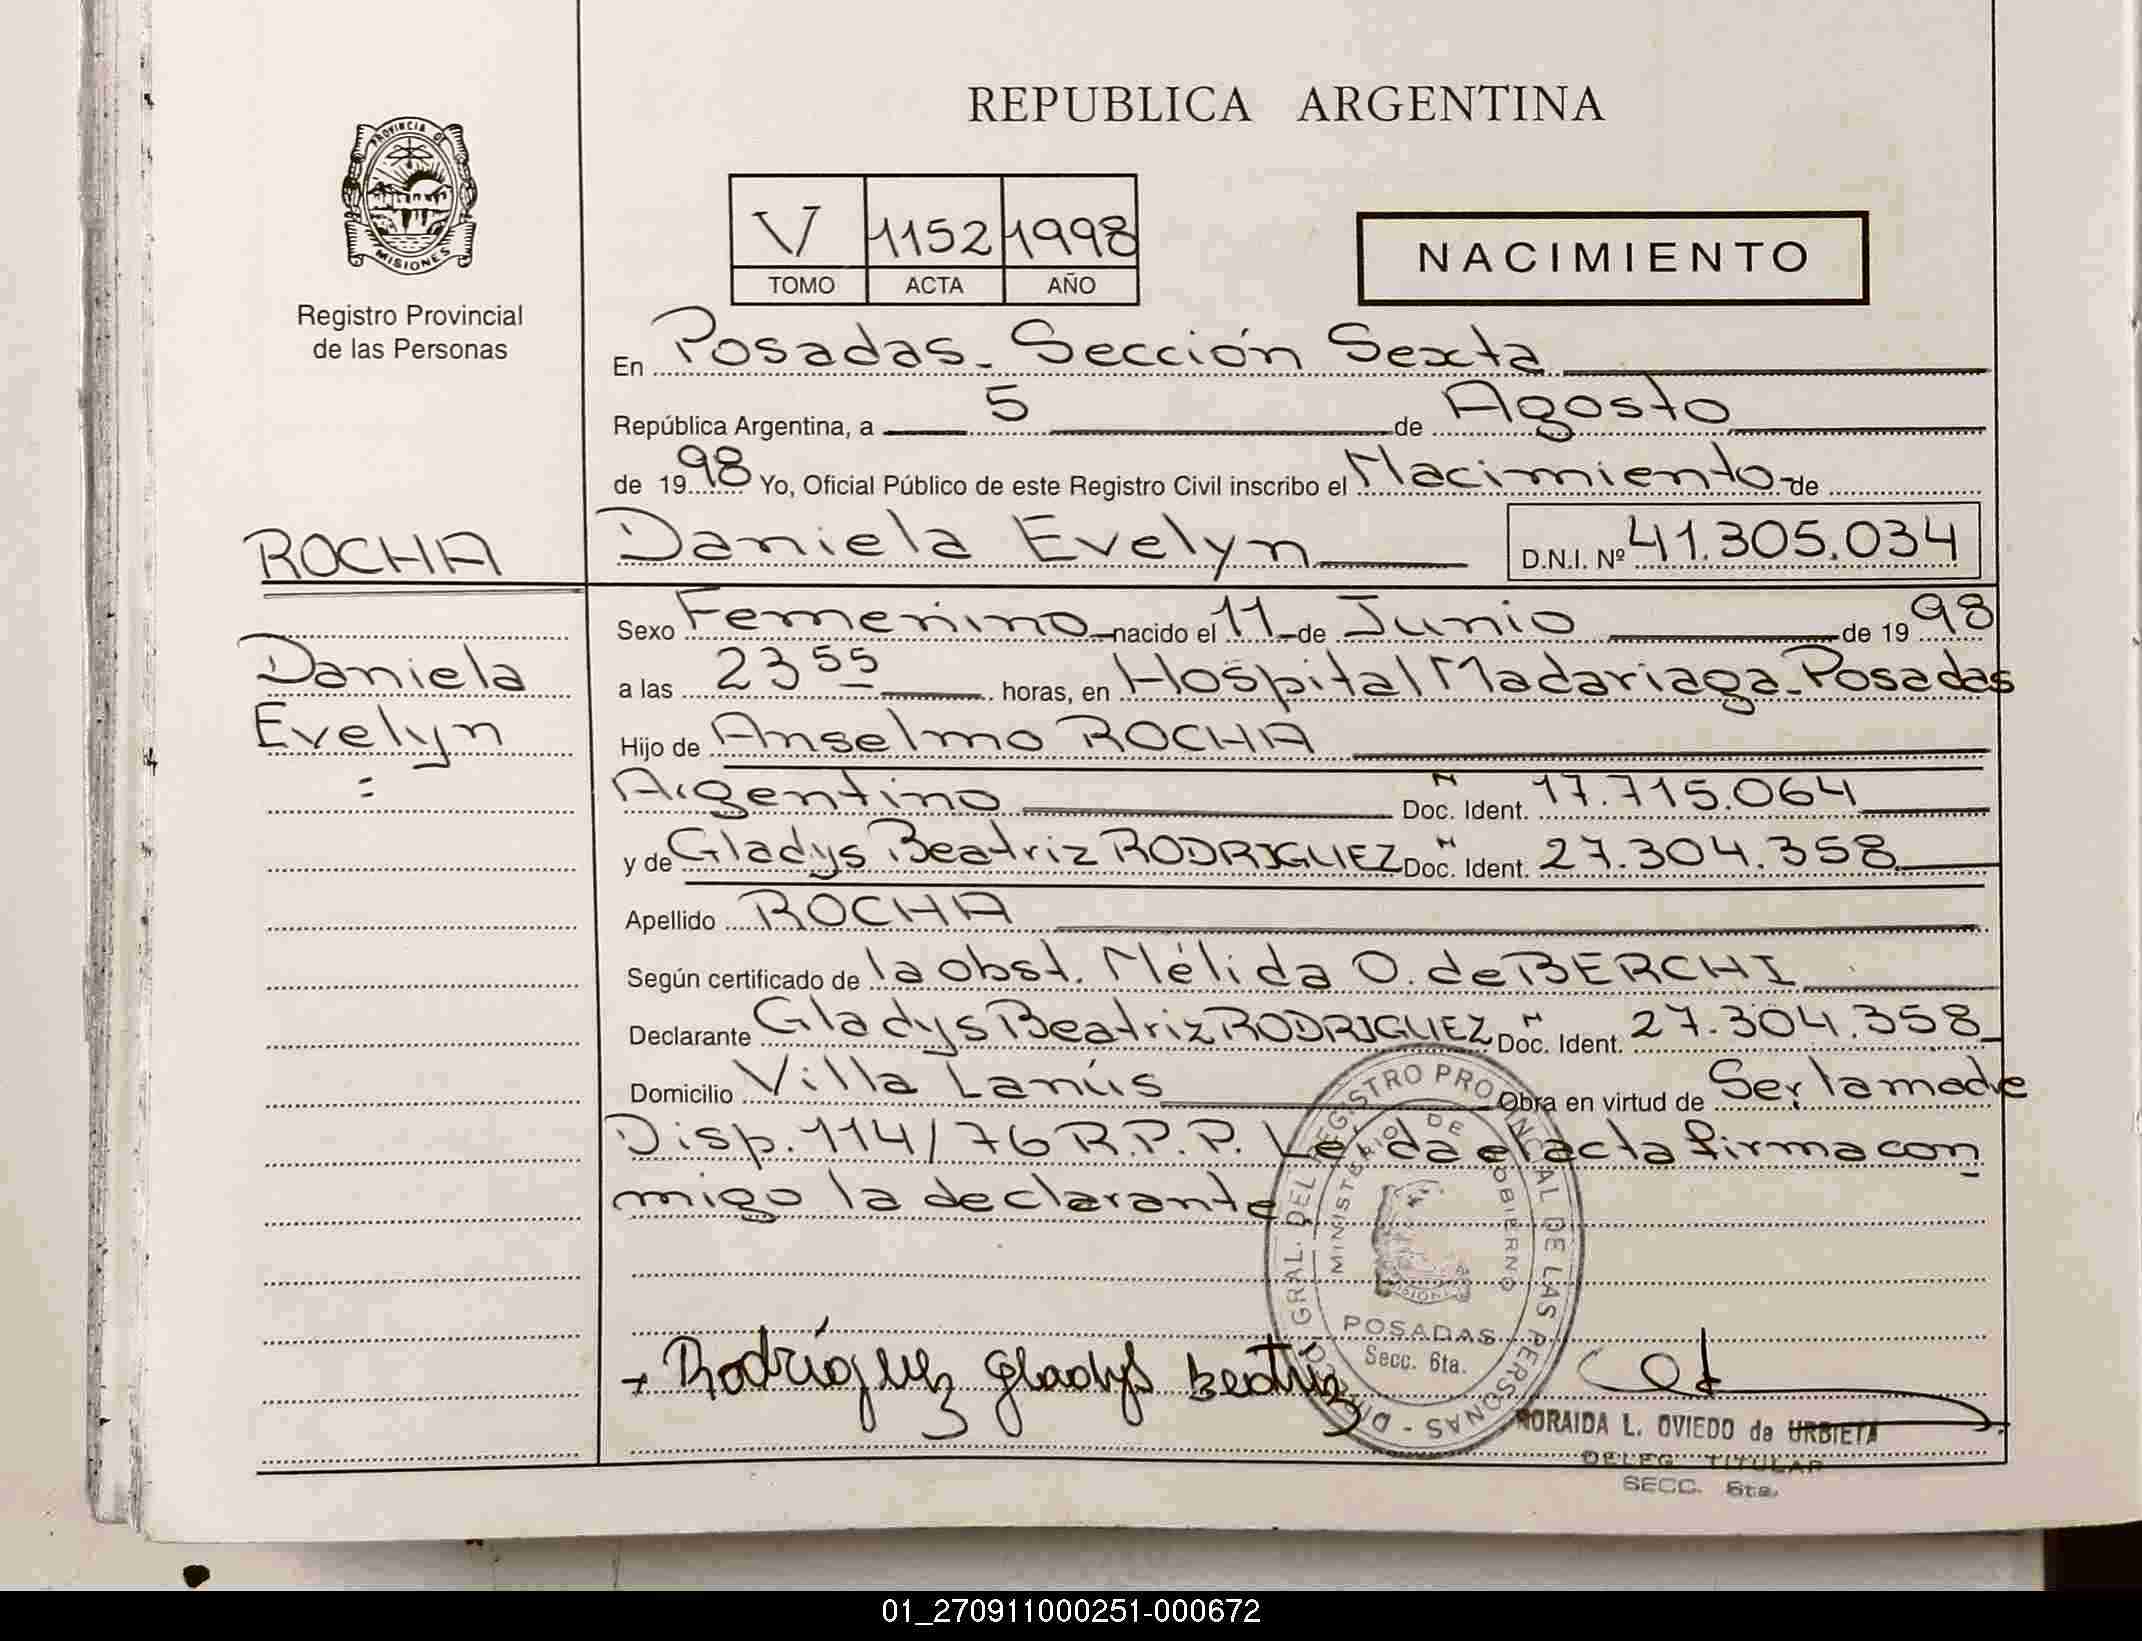 REPUBLICA ARGENTINA
PROVINCIA DE
MISIONES
Registro Provincial
de las Personas
V 1152 1998
TOMO ACTA AÑO
NACIMIENTO
En Posadas - Sección Sexta
República Argentina, a 5 de Agosto
de 1998 Yo, Oficial Público de este Registro Civil inscribo el Nacimiento - de
ROCHA
Daniela Evelyn D.N.I. Nº 41.305.034
Sexo Femenino nacido el 11 de Junio de 1998
Daniela
Evelyn
a las 23 55 horas, en Hospital Madariaga - Posadas
Hijo de Anselmo ROCHA
Argentino Doc. Ident. N 17.715.064
y de Gladys Beatriz RODRIGUEZ Doc. Ident. N 27.304.358
Apellido ROCHA
Según certificado de la obst. Nélida O. de BERCHI
Declarante Gladys Beatriz RODRIGUEZ Doc. Ident. N 27.304.358
Domicilio Villa Lanús Obra en virtud de Ser la madre
Disp. 114/76 R.P.P. Leída el acta firma con
migo la declarante
DIRECC. GRAL. DEL REGISTRO PROVINCIAL DE LAS PERSONAS -
MINISTERIO DE GOBIERNO
MISIONES
POSADAS
Secc. 6ta.
Rodríguez Gladys Beatriz
NORAIDA L. OVIEDO de URBIETA
DELEG. TITULAR
SECC. 6ta.
01_270911000251-000672